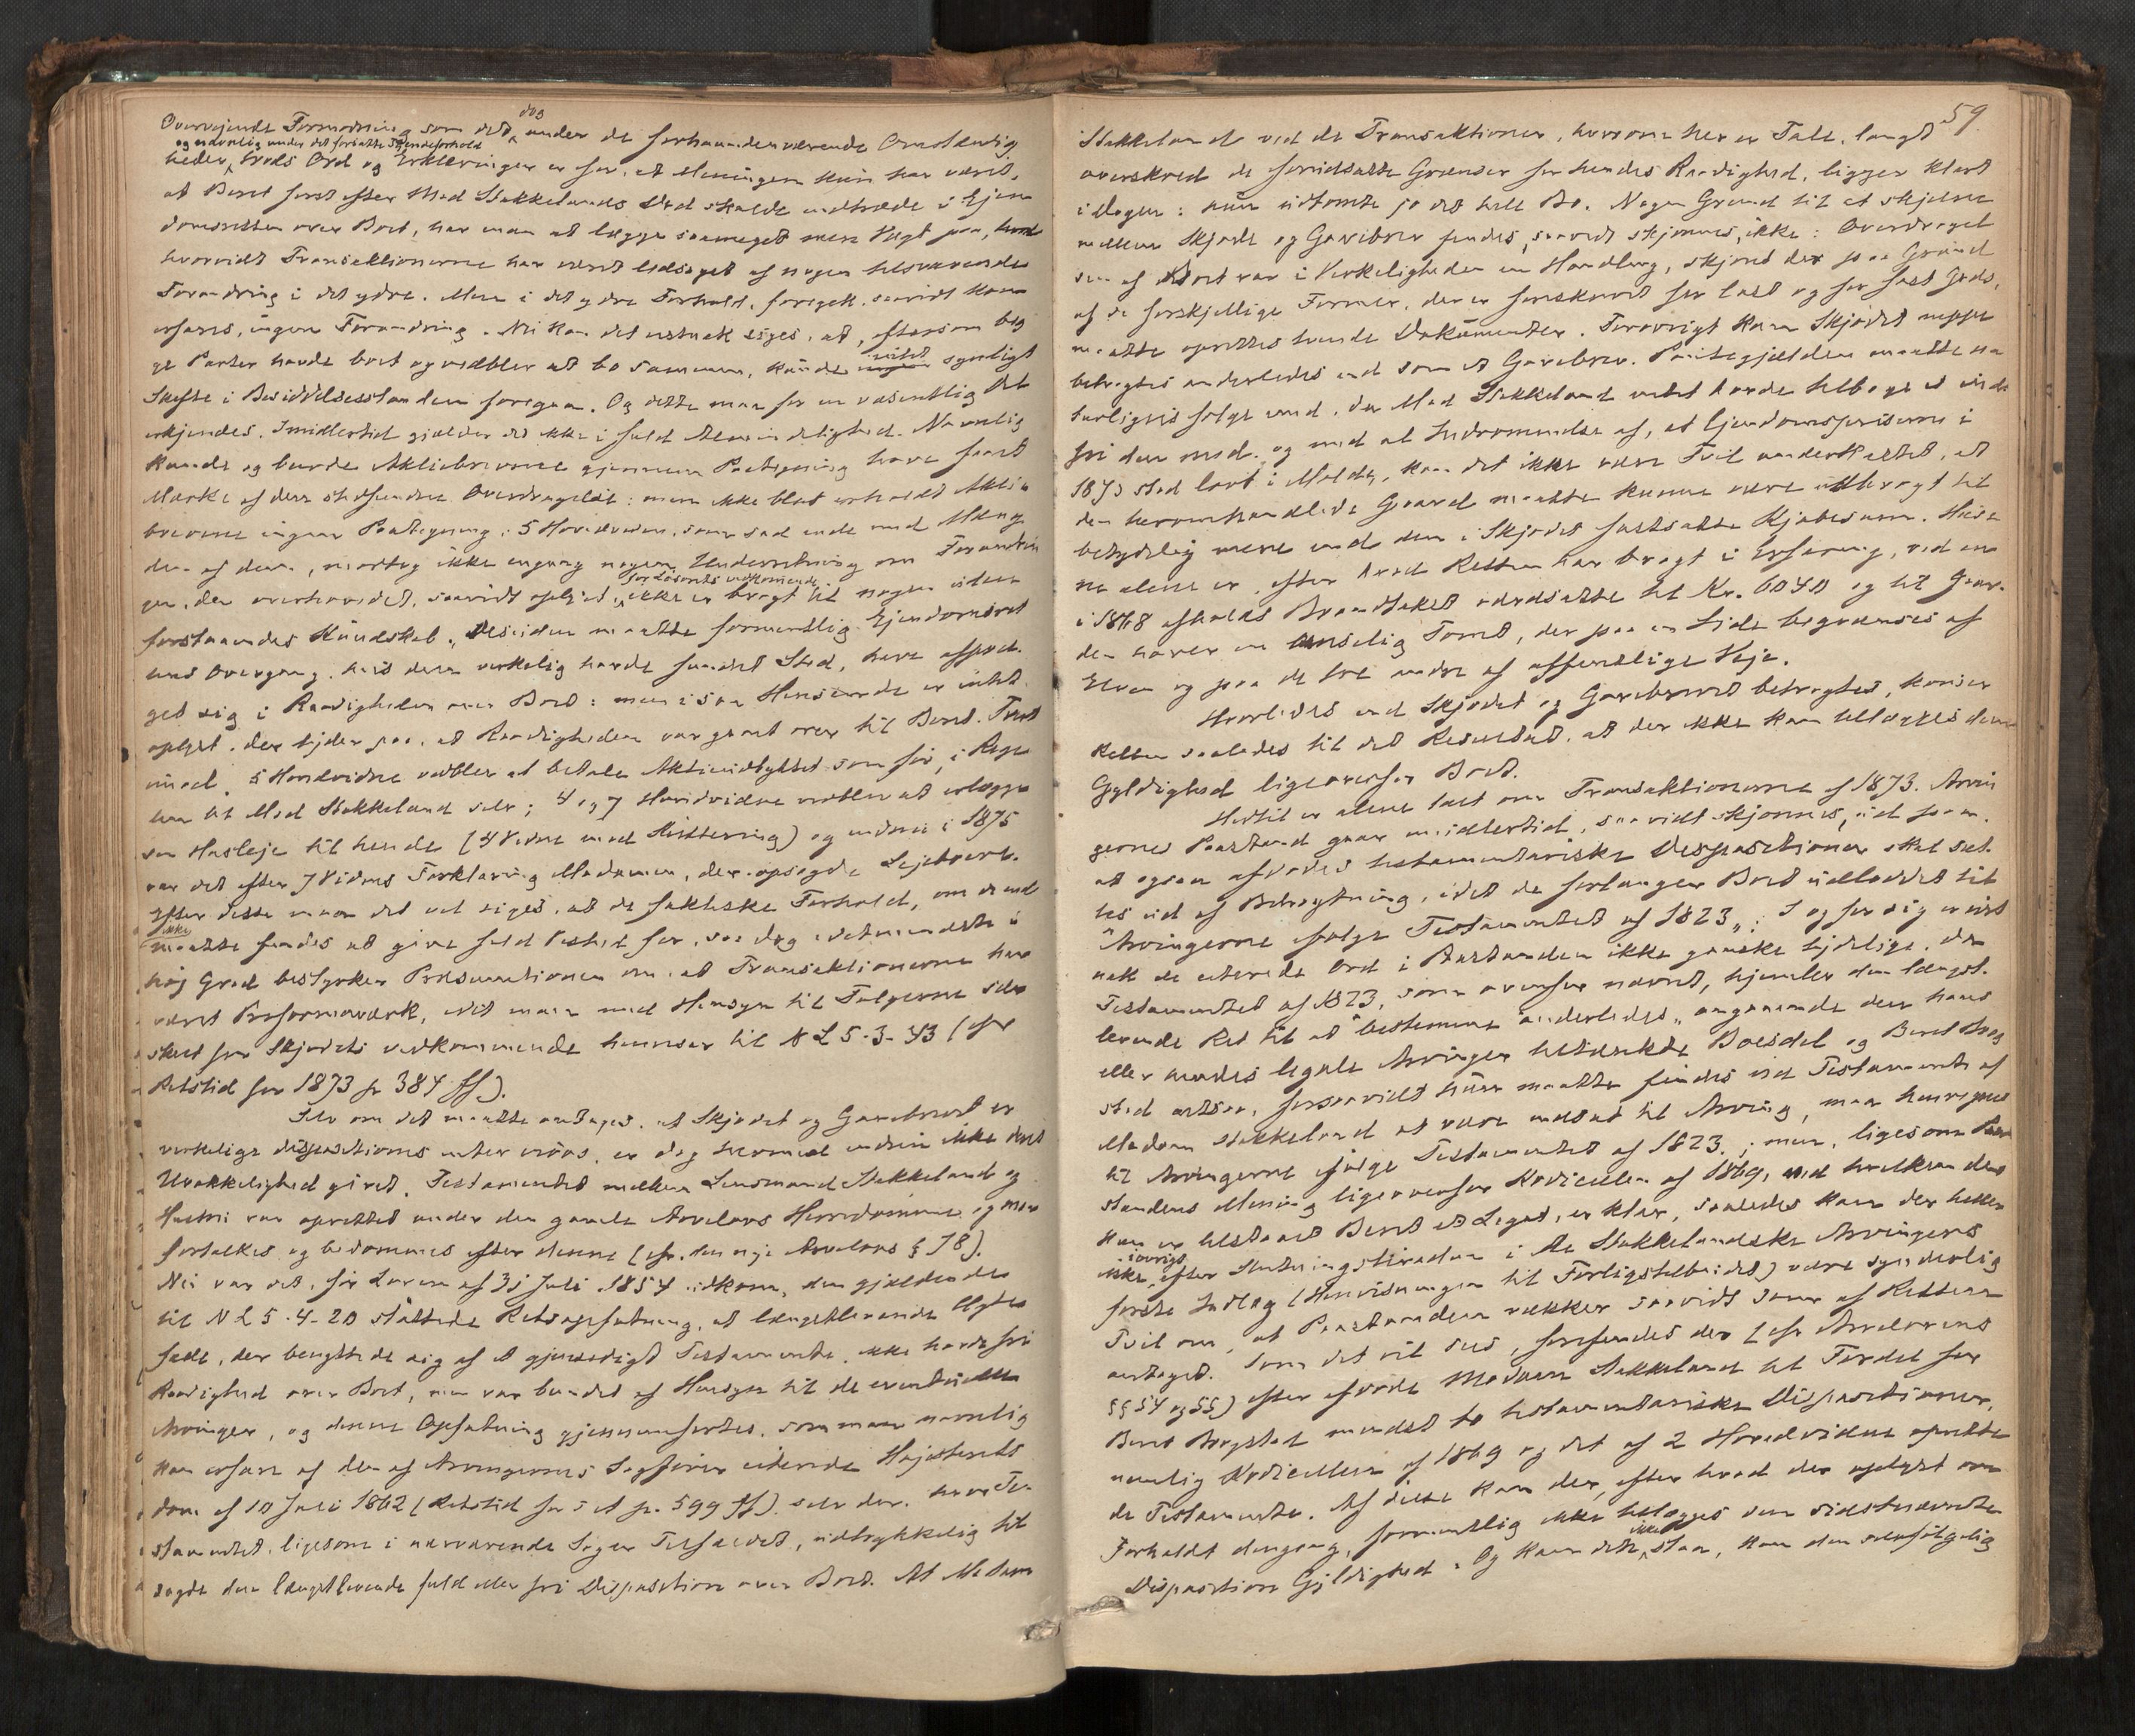 Overvejende Formodning som det dog under de forhaandenværende Omstændig
heder, og navnlig under det fortsatte Tjenesteforhold trods Ord og Erklæringer er for, at Meningen kun har været,
at Beret først efter Mad Stokkelands Død skulde indtræde i Ejen
domsretten over Boet, har man at lægge saameget mere Vægt paa, hvor
hvorvidt Transaktionerne har været ledsaget af nogen tilsvarende
Forandring i det ydre. Men i det ydre Forhold foregik, saavidt kan
erfares, ingen Forandring. Nu kan det vistnok siges, at, eftersom beg
ge Parter havde boet og vedblev at bo sammen, kunde intet synligt
Skifte i Besiddelsesstanden foregaa. Og dette maa for en væsentlig Del
erkjendes. Imidlertid gjælder det ikke i fuld Almindelighed. Navnlig
kunde og burde Aktiebrevene gjennem Paategning have faaet
Mærke af den stedfundne Overdragelse: men ikke blot erholdt Aktie
brevene ingen Paategning: 5 Hovedvidne, som sad inde med Mæng
den af dem, modtog ikke engang nogen Underretning om Forandrin
gen, der overhovedet, saavidt oplyst, for Løsørets vedkommende ikke er bragt til nogen uden
forstaaendes Kundskab. Desuden maatte formentlig Ejendomsret
tens Overgang, hvis den virkelig havde fundet Sted, have afspej
let sig i Raadigheden over Boet: men i saa Henseende er intet
oplyst, der tyder paa, at Raadigheden var gaaet over til Beret. Tvert
imod. 5 Hovedvidne vedblev at betale Aktieudbyttet som før, i Rege
len til Mad Stokkeland selv; 4 og 7 Hovedvidne vedblev at erlægge
sin Husleje til hende (4 Vidne med Kvittering) og endnu i 1875
var det efter 7 Vidnes Forklaring Madamen, der opsagde Lejeboere.
Efter dette maa det vel siges, at de faktiske Forhold, om de end
ikke maatte findes at give fuld Vished for, saa dog idetmindste i
høj Grad bestyrker Præsumtionen om, at Transaktionerne har
været Proformaværk, idet man med Hensyn til Følgerne selv
skal for Skjødets vedkommende henviser til N L 5-3-43 (cfr
Retstid for 1873 p 384 ff).
Selv om det maatte antages, at Skjødet og Gavebrevet er
virkelige dispositiones inter vivos, er dog hermed endnu ikke dets
Urokkelighed givet. Testamentet mellem Lensmand Stokkeland og
Hustru var oprettet under den gamle Arvelovs Herredømme og maa
fortolkes og bedømmes efter denne (cfr. den nye Arvelovs § 78).
Nu var det, før Loven af 31 Juli 1854 udkom, den gjældende
til N L 5-4-20 støttede Retsopfatning, at længstlevende Ægte
fælle, der benyttede sig af et gjensidigt Testamente, ikke havde fri
Raadighed over Boet, men var bundet af Hensyn til de eventuelle
Arvinger, og denne Opfatning gjennemførtes, som man navnlig
kan erfare af den af Arvingernes Sagfører citerede Højesterets
dom af 10 Juli 1862 (Retstid for s A p. 599 ff) selv der, hvor Te-
stamentet, ligesom i nærværende Sager Tilfældet, udtrykkelig til
sagde den længstlevende fuld eller fri Disposition over Boet. At Madam
59.
Stokkeland ved de Transaktioner, hvorom her er Tale, langt
overskred de forudsatte Grænser for hendes Raadighed, ligger klart
i Dagen: hun udtømte jo det hele Bo. Nogen Grund til at skjelne
mellem Skjøde og Gavebrev findes, saavidt skjønnes, ikke: Overdragel
sen af Boet var i Virkeligheden en Handling, skjønt der paa Grund
af de forskjellige Former, der er foreskrevet for løst og for fast Gods,
maatte oprettes tvende Dokumenter. Forøvrigt kan Skjødet neppe
betragtes anderledes end som et Gavebrev. Pantegjælden maatte na
turligvis følge med, da Mad Stokkeland intet havde tilbage at ind
fri den med, og med al Indrømmelse af, at Ejendomspriserne i
1873 stod lavt i Molde, kan det ikke være Tvil underkastet, at
den heromhandlede Gaard maatte kunne være udbragt til
betydelig mere end den i Skjødet fastsatte Kjøbesum. Huse
ne alene er, efter hvad Retten har bragt i Erfaring, ved en
i 1868 afholdt Brandtakst værdsatte til Kr. 6040 og til Gaar-
den hører en anselig Tomt, der paa en Side begrænses af
Elven og paa de tre andre af offentlige Veje.
Hvorledes end Skjødet og Gavebrevet betragtes, kommer
Retten saaledes til det Resultat, at der ikke kan tillægges dem
Gyldighed ligeoverfor Boet.
Hidtil er alene talt om Transaktionerne af 1873. Arvin
gernes Paastand gaar imidlertid, saavidt skjønnes, ud paa,
at ogsaa afdødes testamentariske Dispositioner skal sæt-
tes ud af Betragtning, idet de forlanger Boet udloddet til
"Arvingerne ifølge Testamentet af 1823": I og for sig er vist
nok de citerede Ord i Paastanden ikke ganske tydelige, da
Testamentet af 1823, som ovenfor nævnt, hjemler den længst-
levende Ret til at "bestemme anderledes" angaaende den hans
eller hendes legale Arvinger tiltænkte Boesdel og Beret Berg
stad altsaa, forsaavidt hun maatte findes ved Testamente af
Madam Stokkeland at være indsat til Arving, maa henregnes
til Arvingerne ifølge Testamentet af 1823; men, ligesom Paa
standens Mening ligeoverfor Kodicillen af 1869, ved hvilken der
kun er tilstaaet Beret et Legat, er klar, saaledes kan der heller
ikke iøvrigt efter Slutningstiraden i de Stokkelandske Arvingers
første Indlæg (Henvisningen til Forligstilbudet) være synderlig
Tvil om, at Paastanden rækker saavidt som af Retten
antaget. Som det vil sees, forefindes der (cfr Arvelovens
§§ 54 og 55) efter afdøde Madam Stokkeland til Fordel for
Beret Bergstad mindst to testamentariske Dispositioner,
nemlig Kodicillen af 1869 og det af 2 Hovedvidne oprette
de Testamente. Af disse kan der, efter hvad der oplyst om
Forholdet dengang, formentlig ikke tillægges den sidstnævnte
Disposition Gyldighed. Og kan den ikke staa, kan den selvfølgelig